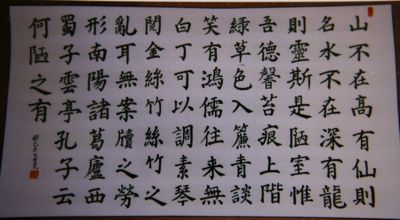 山不在高有仙則
名水不在深有龍
則靈斯是陋室惟
吾德馨苔痕上階
綠草色入簾青談
笑有鴻儒往來無
白丁可以調素琴
閱金絲竹絲竹之
亂耳無案牘之勞
形南陽諸葛廬西
蜀子雲亭孔子云
何陋之有